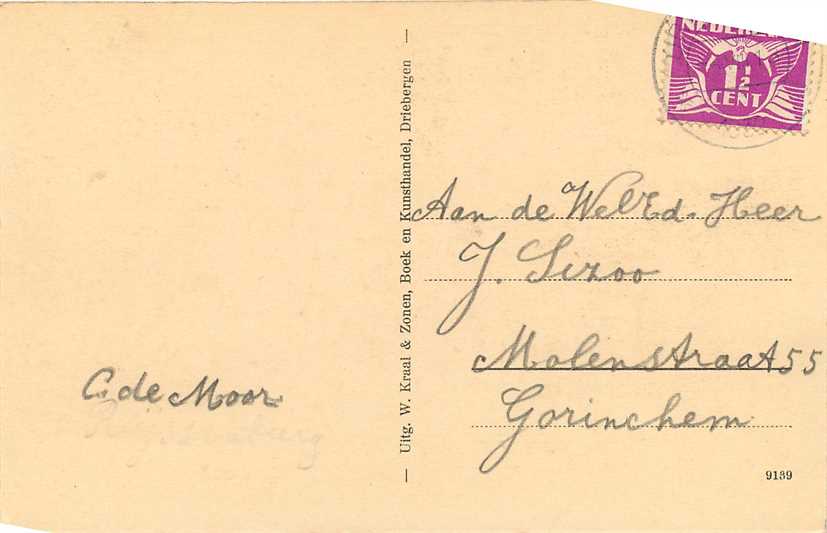 NEDERLAND
1½
CENT
Aan de WelEd. Heer
J. Sizoo
Molenstraat 55
Gorinchem
C. de Moor
— Uitg. W. Kraal & Zonen, Boek en Kunsthandel, Driebergen —
9139